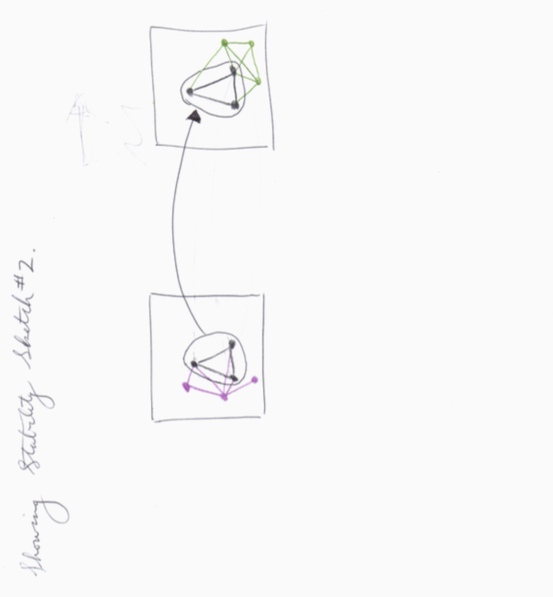 Showing Stability Sketch #2.